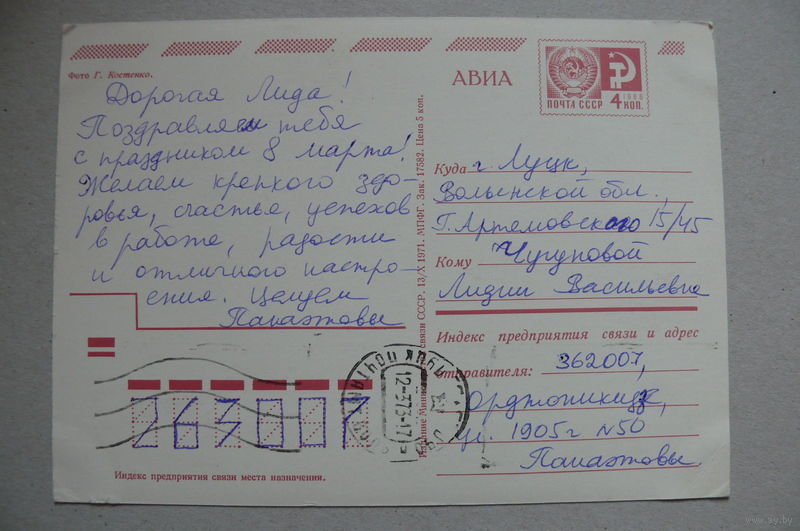 Фото Г. Костенко.
Дорогая Лида!
Поздравляем тебя
с праздником 8 марта!
Желаем крепкого здо-
ровья, счастья, успехов
в работе, радости
и отличного настро-
ения. Целуем
263007
Индекс предприятия связи места назначения.
Издание Министерства связи СССР. 13/X 1971. МПФГ. Зак. 17582. Цена 5 коп.
АВИА
ПОЧТА СССР
1966
4 КОП.
Куда г. Луцк,
Волынской обл.,
Г. Артемовского 15/45
Кому Чугуновой
Лидии Васильевне
Индекс предприятия связи и адрес
отправителя: 362007,
Орджоникидзе,
ул. 1905г N50
ЛУЦЬК ПОШТАМТ
www.ay.by